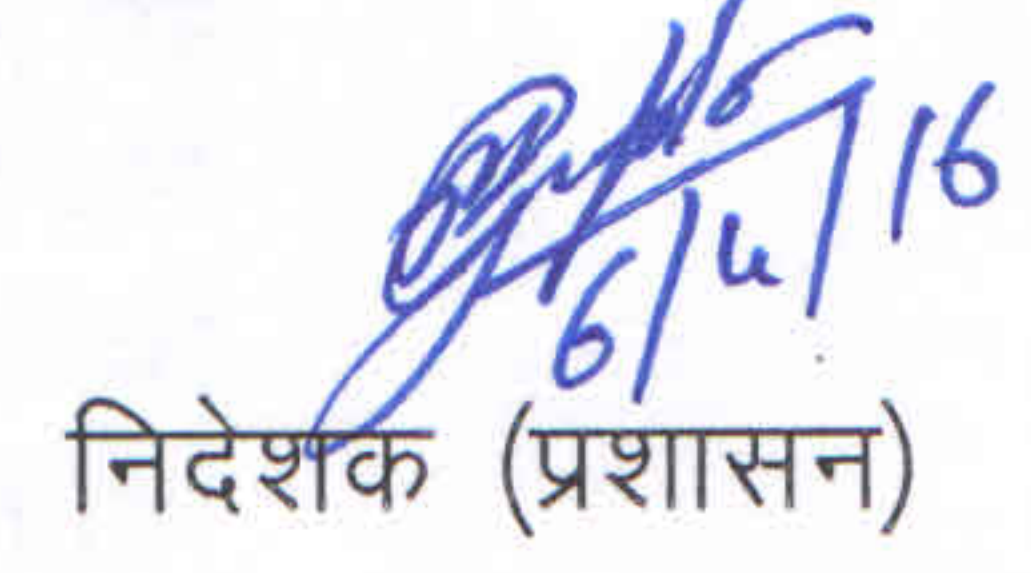 6/4/16
निदेशक (प्रशासन)